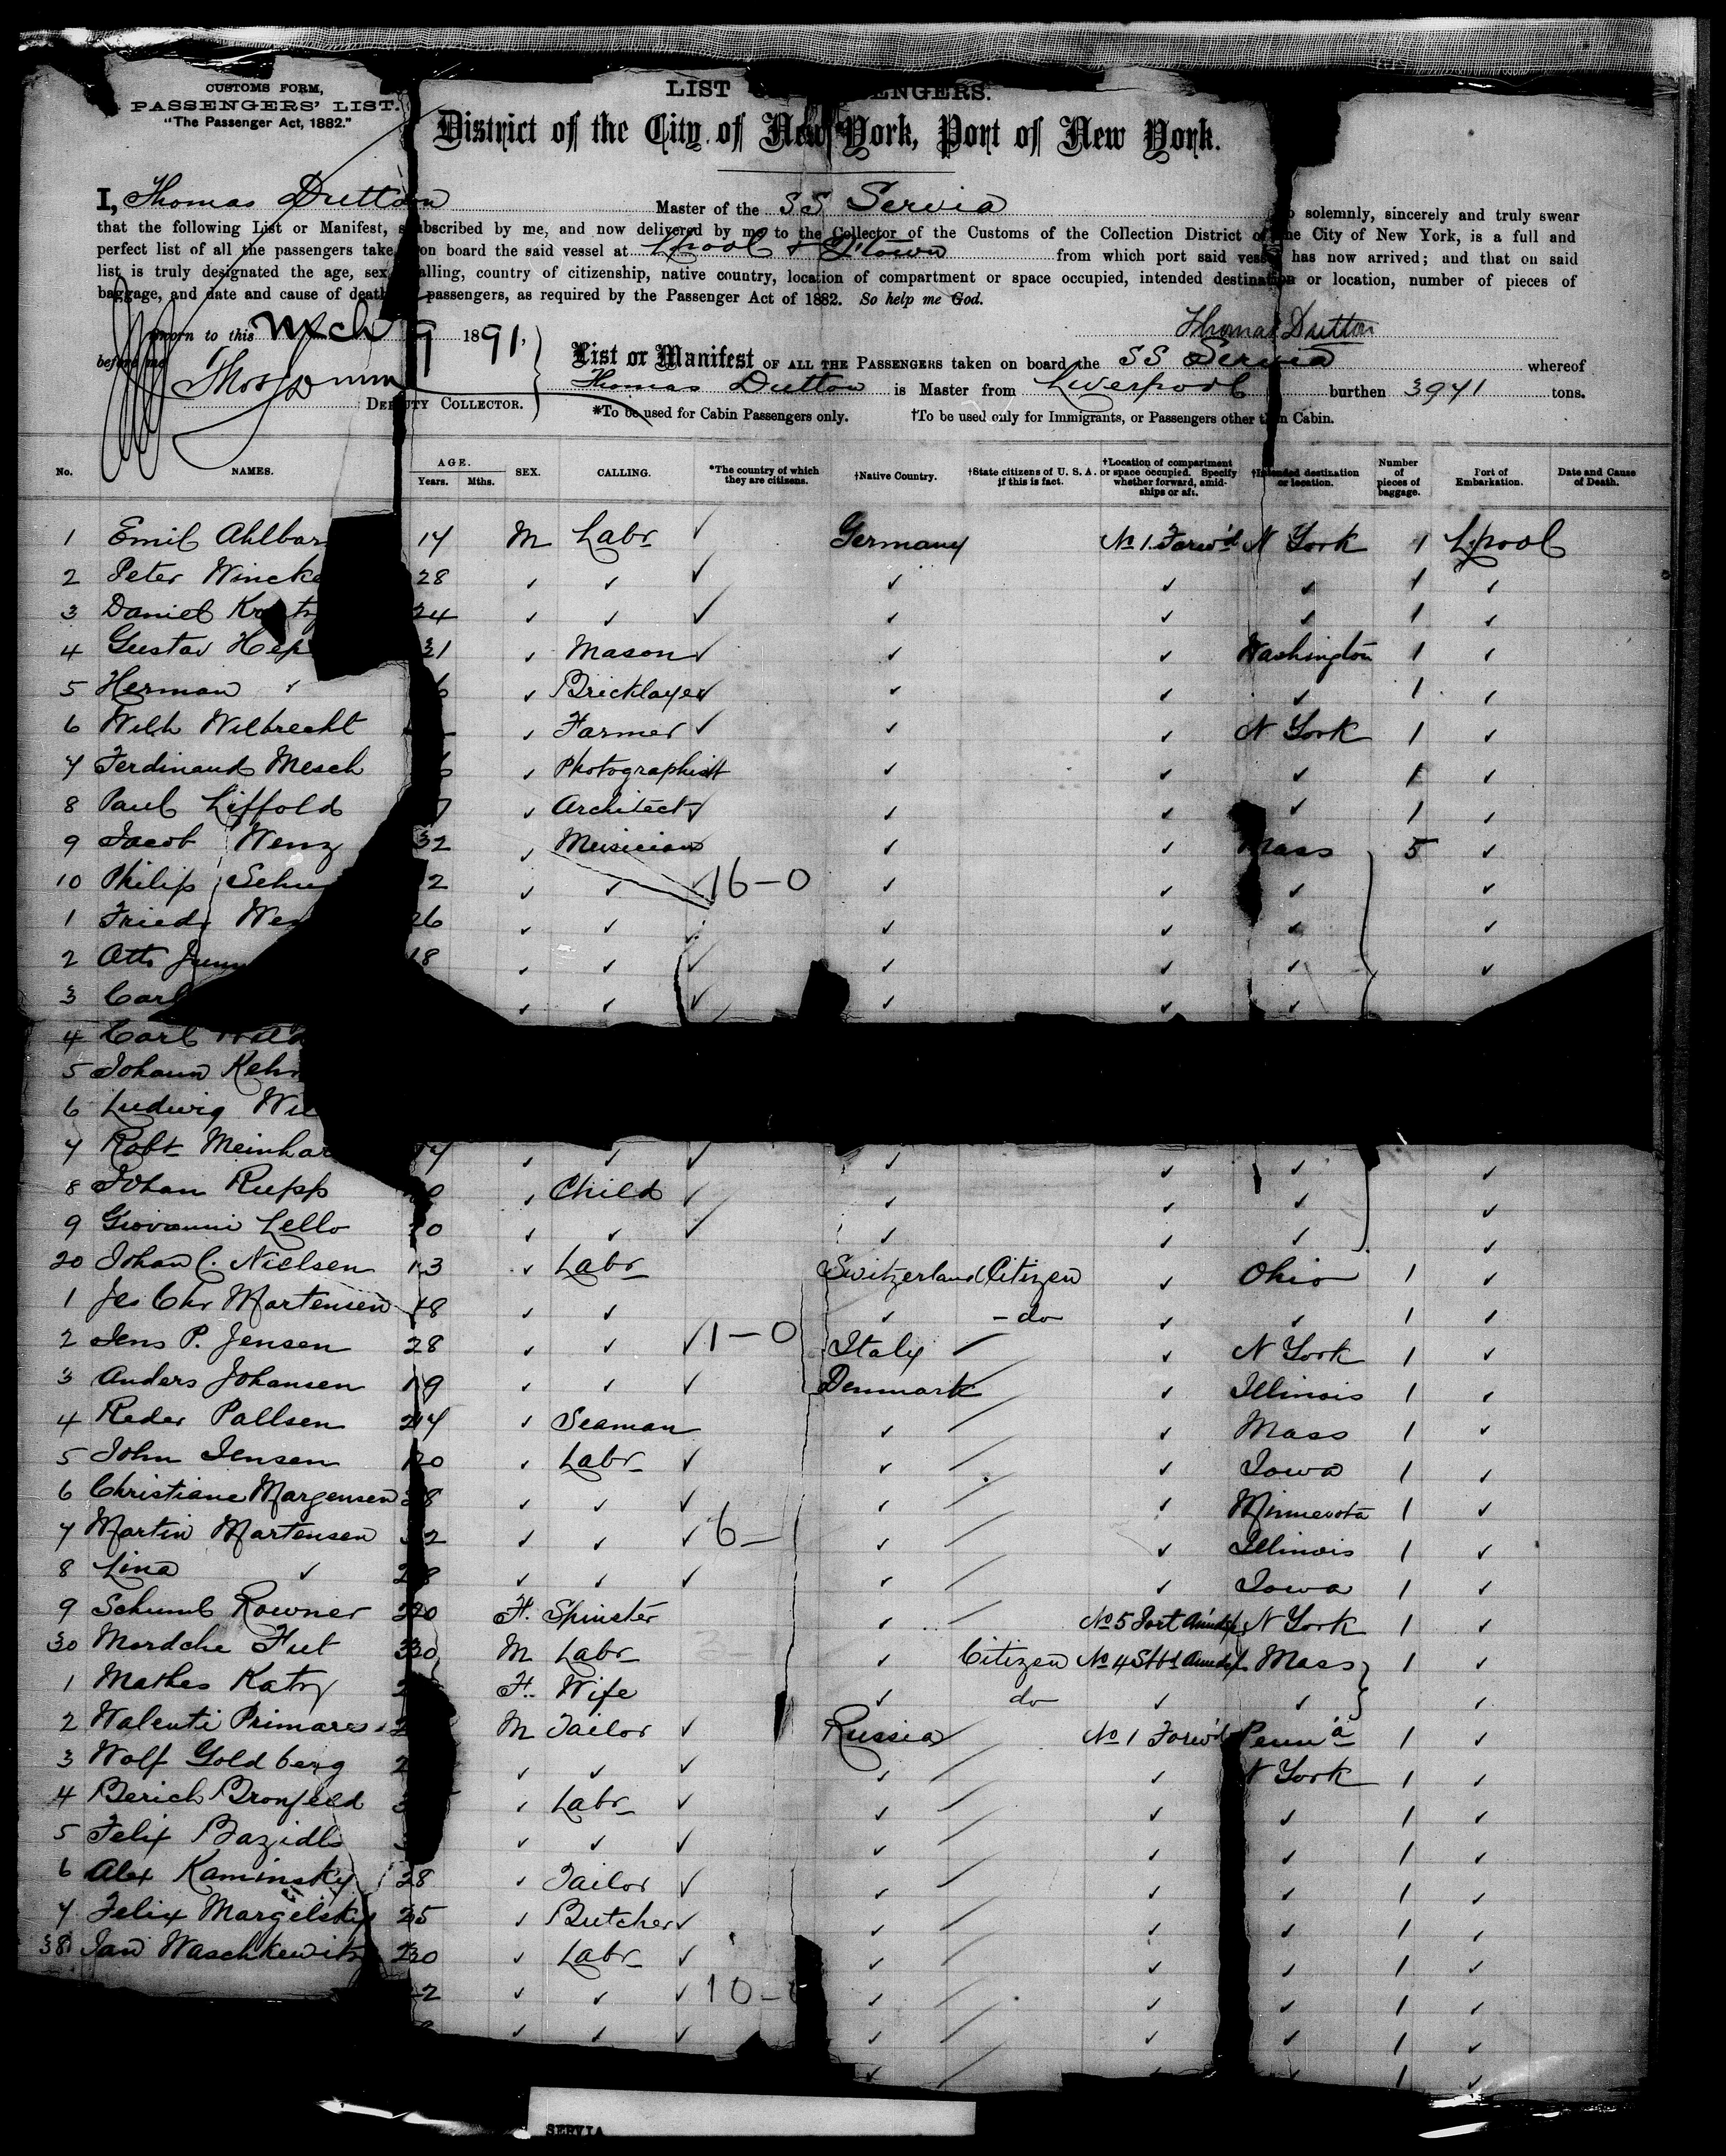 CUSTOMS FORM,
PASSENGERS' LIST.
"The Passenger Act, 1882."
LIST ENGERS.
District of the City of New York, Port of New York.
I, Thomas Dutton Master of the SS Servia solemnly, sincerely and truly swear
that the following List or Manifest, subscribed by me, and now delivered by me to the Collector of the Customs of the Collection District of the City of New York, is a full and
perfect list of all the passengers taken on board the said vessel at L'pool & Q'town from which port said vessel has now arrived; and that on said
list is truly designated the age, sex, calling, country of citizenship, native country, location of compartment or space occupied, intended destination or location, number of pieces of
baggage, and date and cause of death passengers, as required by the Passenger Act of 1882. So help me God.
Sworn to this Mch 9 1891, Thomas Dutton
before me
List or Manifest OF ALL THE PASSENGERS taken on board the SS Servia whereof
Thomas Dutton is Master from Liverpool burthen 3941 tons.
DEPUTY COLLECTOR.
*To be used for Cabin Passengers only. †To be used only for Immigrants, or Passengers other than Cabin.
No. NAMES. AGE. Years. Mths. SEX. CALLING. *The country of which they are citizens. †Native Country. †State citizens of U. S. A. if this is fact. †Location of compartment or space occupied. Specify whether forward, amidships or aft. †Intended destination or location. Number of pieces of baggage. Port of Embarkation. Date and Cause of Death.
1 Emil 14 M Labr ✓ Germany No 1 Forw'd N York 1 L'pool
2 Peter 28 ✓ ✓ ✓ ✓ ✓ ✓ 1 ✓
3 Daniel 24 ✓ ✓ ✓ ✓ ✓ ✓ 1 ✓
4 Gustav 31 ✓ Mason ✓ ✓ ✓ Washington 1 ✓
5 Herman ✓ 6 ✓ Bricklayer ✓ ✓ ✓ ✓ 1 ✓
6 Wilh Wilbrecht ✓ Farmer ✓ ✓ ✓ N York 1 ✓
7 Ferdinand Mesch 6 ✓ Photographist ✓ ✓ ✓ 1 ✓
8 Paul Liffold 7 ✓ Architect ✓ ✓ ✓ ✓ 1 ✓
9 Jacob Wenz 32 ✓ Musician ✓ ✓ Mass 5 ✓
10 Philip 2 ✓ ✓ ✓ 16-0 ✓ ✓ ✓ ✓
1 Fried 26 ✓ ✓ ✓ ✓ ✓ ✓ ✓
2 Otto 18 ✓ ✓ ✓ ✓ ✓ ✓ ✓
3 Carl ✓ ✓ ✓ ✓ ✓ ✓
4 Carl
5 Johann
6 Ludwig
7 Robt ✓ ✓ ✓ ✓ ✓ ✓ ✓
8 Johan Rupp ✓ Child ✓ ✓ ✓ ✓ ✓
9 Giovanni Lello ✓ ✓ ✓ ✓ ✓ ✓ ✓
20 Johan C. Nielsen ✓ Labr Switzerland Citizen ✓ Ohio 1 ✓
1 Jes Chr Martensen 18 ✓ ✓ ✓ -do ✓ ✓ 1 ✓
2 Jens P. Jensen 28 ✓ ✓ ✓ 1-0 Italy ✓ N York 1 ✓
3 Anders Johansen 19 ✓ ✓ ✓ Denmark ✓ Illinois 1 ✓
4 Reder Pallsen ✓ Seaman ✓ ✓ Mass 1 ✓
5 John Jensen ✓ Labr ✓ ✓ ✓ Iowa 1 ✓
6 Christiane Margensen ✓ ✓ ✓ ✓ ✓ Minnesota 1 ✓
7 Martin Martensen ✓ ✓ ✓ 6- ✓ ✓ Illinois 1 ✓
8 Lina ✓ ✓ ✓ ✓ ✓ ✓ Iowa 1 ✓
9 Schuml Rowner F. Spinster ✓ No 5 Port Amidsp N York 1 ✓
30 Mordche Fut M Labr ✓ Citizen No 4 Stbd Amidsp Mass 1 ✓
1 Mathes Katz F. Wife ✓ do ✓ ✓ ✓
2 Walenti Primares M Tailor ✓ Russia No 1 Forw'd Penn'a 1 ✓
3 Wolf Goldberg ✓ ✓ ✓ ✓ ✓ N York 1 ✓
4 Berich Bronfeld ✓ Labr ✓ ✓ ✓ ✓ 1 ✓
5 Felix Bazidlo ✓ ✓ ✓ ✓ ✓ ✓ 1 ✓
6 Alex Kaminsky 28 ✓ Tailor ✓ ✓ ✓ ✓ 1 ✓
7 Felix Margelsky 25 ✓ Butcher ✓ ✓ ✓ ✓ 1 ✓
38 Jan Waschkewitz ✓ Labr ✓ ✓ ✓ ✓ 1 ✓
22 ✓ ✓ ✓ 10- ✓ ✓ ✓ 1 ✓
✓ ✓ ✓ ✓ ✓ ✓ 1 ✓
✓ 1 ✓
SERVIA